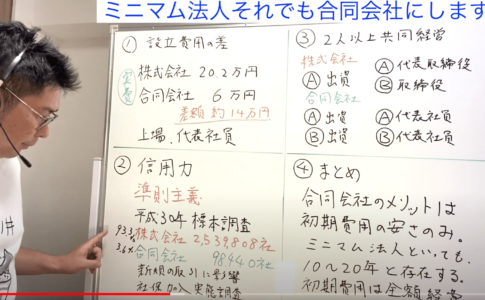 ミニマム法人それでも合同会社にします
① 設立費用の差
実費
株式会社 20.2万円
合同会社 6万円
差額 約14万円
上場、代表社員
② 信用力
準則主義
平成30年 標本調査
株式会社 2,539,808社
合同会社 98,440社
新規の取引に影響
社保加入実態調査
③ 2人以上共同経営
株式会社
Ⓐ 出資 Ⓐ 代表取締役
Ⓑ 取締役
合同会社
Ⓐ 出資 Ⓐ 代表社員
Ⓑ 出資 Ⓑ 代表社員
④ まとめ
合同会社のメリットは
初期費用の安さのみ。
ミニマム法人といっても、
10～20年と存在する。
初期費用は全額経費